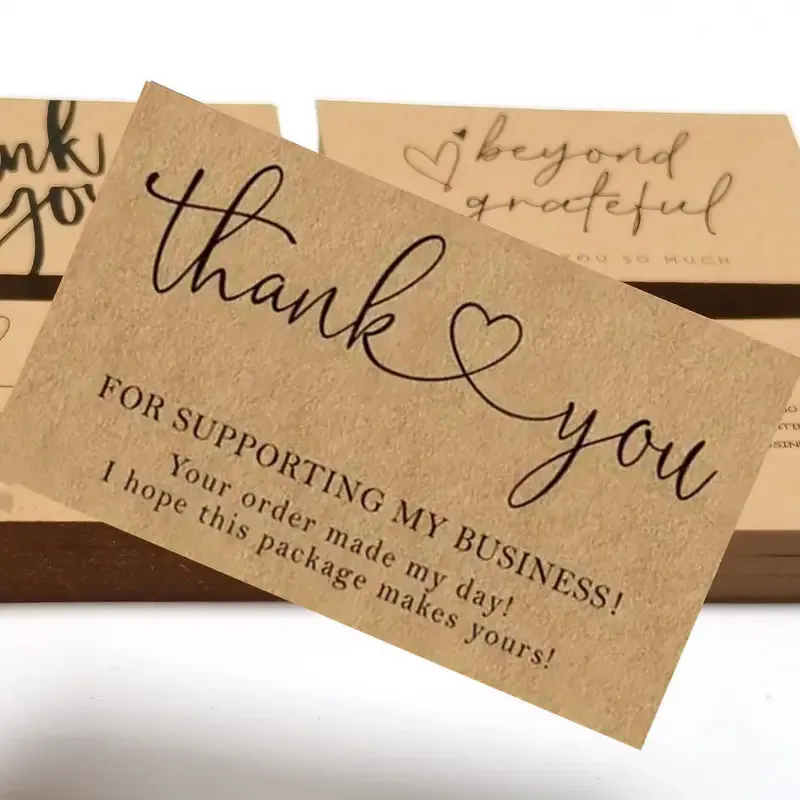 thank you
FOR SUPPORTING MY BUSINESS!
Your order made my day!
I hope this package makes yours!
beyond
grateful
YOU SO MUCH